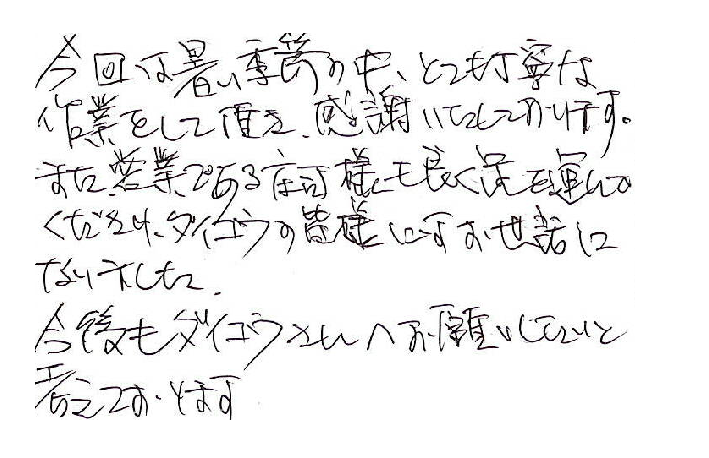 今回は暑い季節の中、とても丁寧な
作業をして頂き、感謝いたしております。
また、営業である庄司様にも良く足を運んで
くださり、ダイコウの皆様にはお世話に
なりました。
今後もダイコウさんへお願いしたいと
考えております